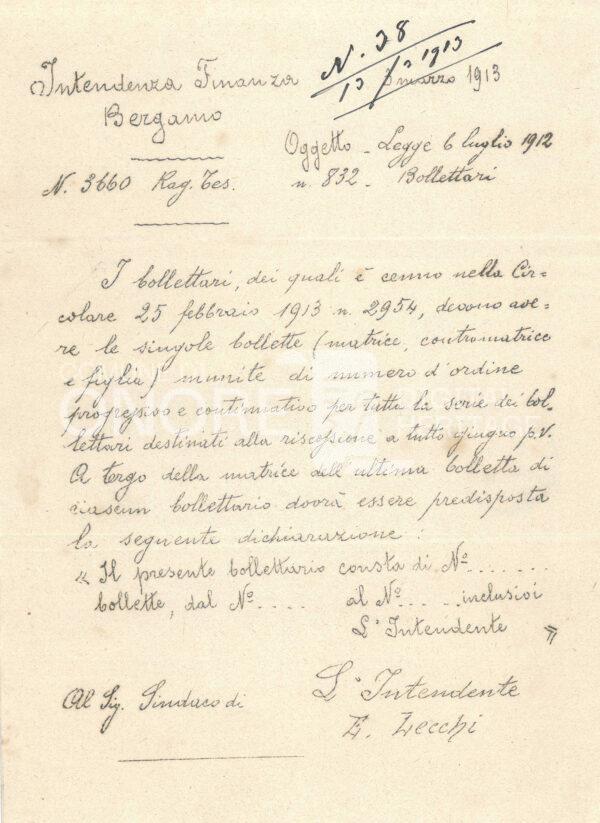 N. 38
13/13 1913
Intendenza Finanza
Bergamo
8 marzo 1913
Oggetto - Legge 6 luglio 1912
n. 832 - Bollettari
N. 3660 Rag. Tes.
I bollettari, dei quali è cenno nella Cir=
colare 25 febbraio 1913 n. 2954, devono ave=
re le singole bollette (matrice, contromatrice
e figlia) munite di numero d'ordine
progressivo e continuativo per tutta la serie dei bol=
lettari destinati alla riscossione a tutto giugno p.v.
A tergo della matrice dell'ultima bolletta di
ciascun bollettario dovrà essere predisposta
la seguente dichiarazione:
« Il presente bollettario consta di Nº.......
bollette, dal Nº.... al Nº.....inclusivi
L'Intendente »
Al Sig. Sindaco di
L'Intendente
E. Zecchi